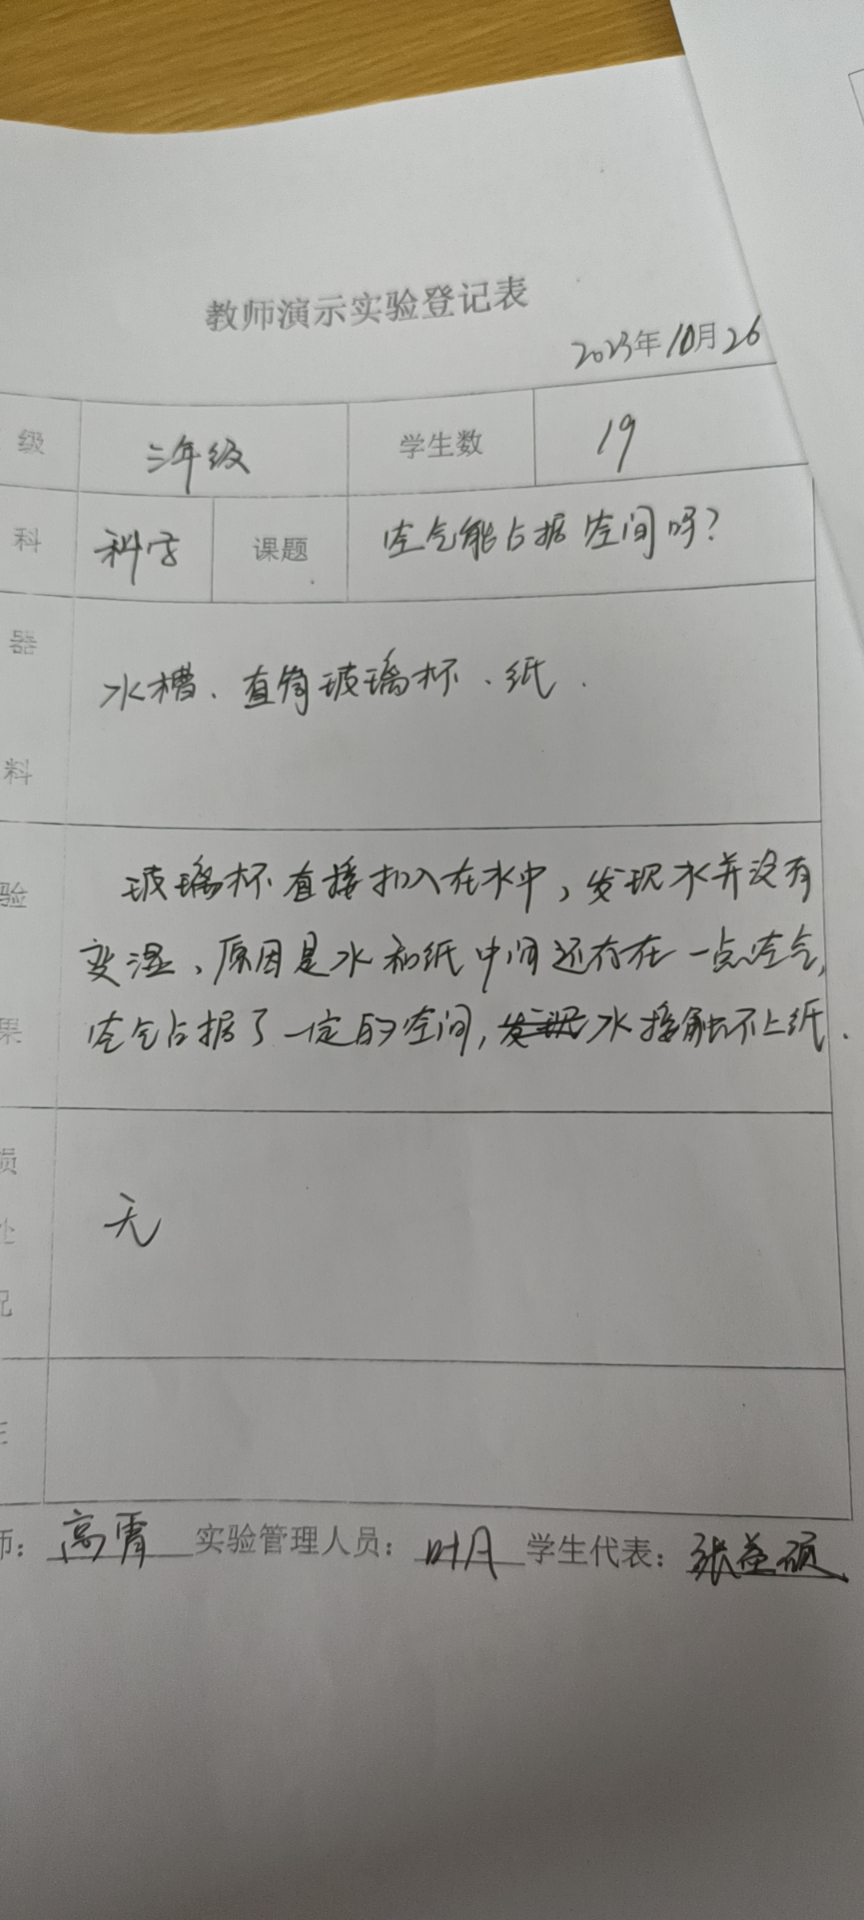 教师演示实验登记表
2023年10月26
级 三年级 学生数 19
科 科学 课题 空气能占据空间吗?
器
水槽、直筒玻璃杯、纸.
料
验 玻璃杯直接扣入在水中,发现水并没有
变湿、原因是水和纸中间还存在一点空气,
果 空气占据了一定的空间,水接触不上纸.
损
处 无
况
师: 高霄 实验管理人员: 叶月 学生代表: 张益硕